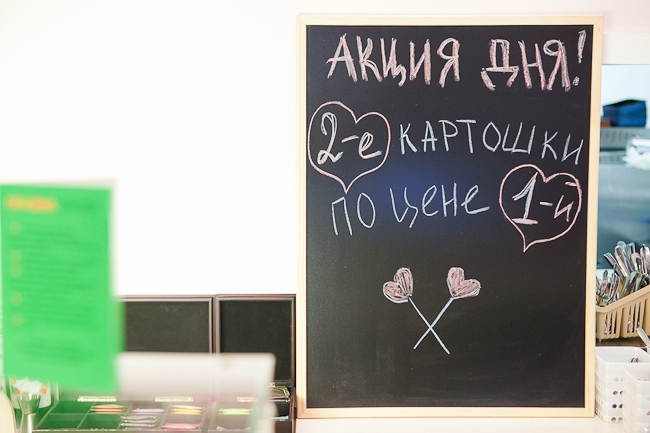 АКЦИЯ ДНЯ!
2-е КАРТОШКИ
ПО ЦЕНЕ 1-й